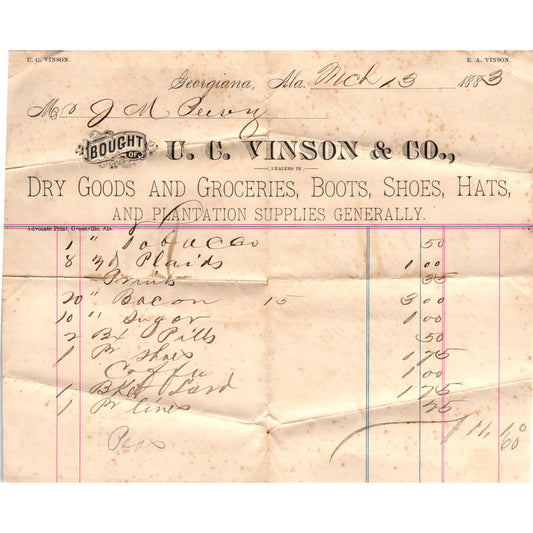 U. C. VINSON. E. A. VINSON.
Georgiana, Ala. Mch 13 1883
Mr J M Peevy
BOUGHT OF U. C. VINSON & CO.,
DEALERS IN
DRY GOODS AND GROCERIES, BOOTS, SHOES, HATS,
AND PLANTATION SUPPLIES GENERALLY.
Advocate Print, Greenville, Ala.
1 " Tobacco 50
8 yd Plaids 1 00
Prints 35
20 " Bacon 15 3 00
10 " Sugar 1 00
2 Bx Pills 50
1 Pr Shoes 1 75
Coffee 1 00
1 Bket Lard 1 75
1 Pr lines 25
11 10
Peas 60